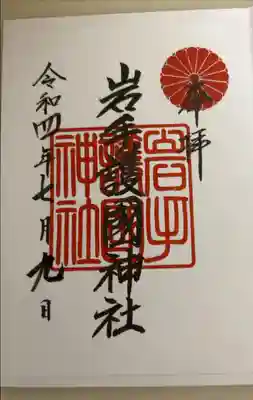 奉拝
岩手護國神社
岩手護國神社
令和四年七月九日